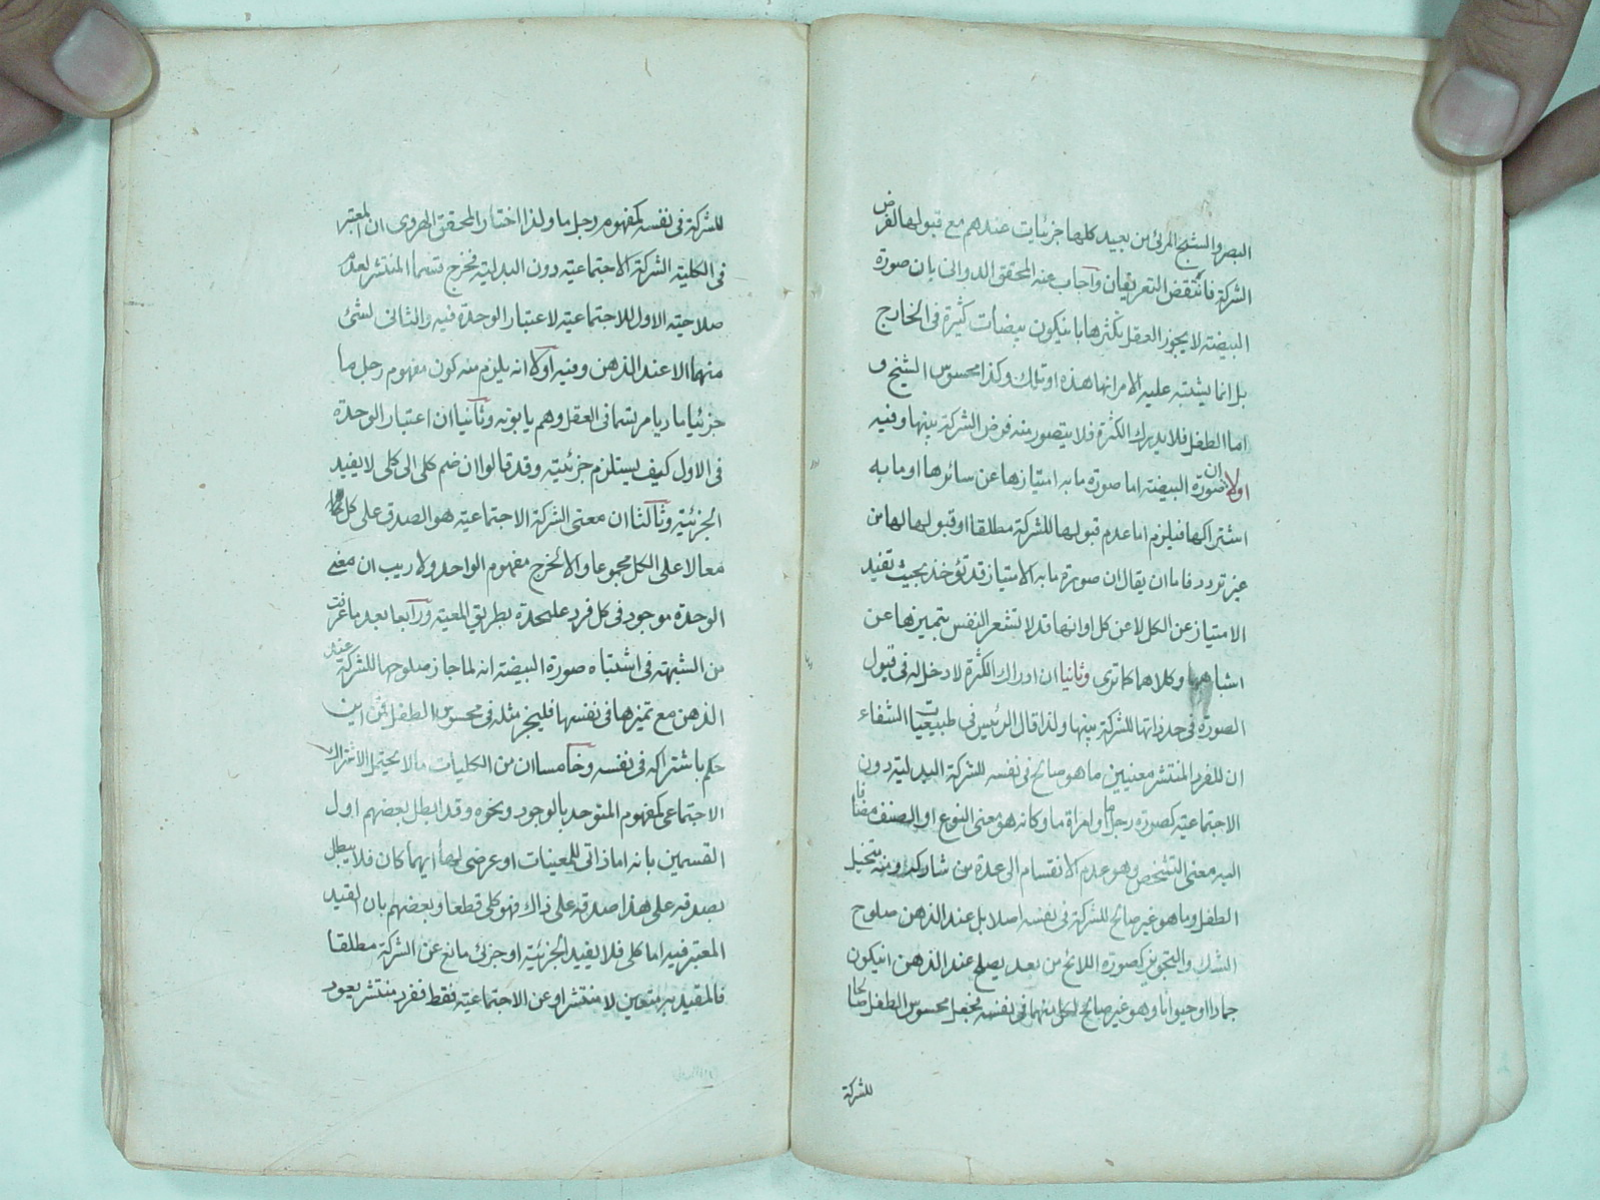 البصر والشبح المرئى من بعيد كلها جزئيات عندهم مع قبولها لفرض
الشركة فانتقض التعريفان واجاب عنه المحقق الدوانى بان صورة
البيضة لا يجوز العقل تكثرها بان يكون بيضات كثيرة فى الخارج
بل انما يشتبه عليه الامر انها هذه او تلك وكذا محسوس الشيخ و
اما الطفل فلا يدرك الكثرة فلا يتصور منه فرض الشركة بينها وفيه
اولا ان صورة البيضة اما صورة ما به امتيازها عن سائرها او ما به
اشتراكها فيلزم اما عدم قبولها للشركة مطلقا او قبولها لها من
غير تردد فاما ان يقال ان صورة ما به الامتياز قد تؤخذ بحيث تفيد
الامتياز عن الكل لا عن كل او انها قد لا تشعر النفس بتميزها عن
اشباهها وكلاهما كما ترى وثانيا ان ادراك الكثرة لا دخل له فى قبول
الصورة فى حد ذاتها للشركة بينها ولذا قال الرئيس فى طبيعيات الشفاء
ان للفرد المنتشر معنيين ما هو صالح فى نفسه للشركة البدلية دون
الاجتماعية كصورة رجل ما او امراة ما وكانه هو معنى النوع او الصنف مضافا
اليه معنى التشخص وهو عدم الانقسام الى عدة من شاركه ومنه متخيل
الطفل وما هو غير صالح للشركة فى نفسه اصلا بل عند الذهن صلوح
الشك والتجويز كصورة اللائح من بعد يصلح عند الذهن ان يكون
جمادا او حيوانا وهو غير صالح لكل منهما فى نفسه فجعل محسوس الطفل صالحا
للشركة
للشركة فى نفسه كمفهوم رجل ما ولذا اختار المحقق الهروى ان المعتبر
فى الكلية الشركة الاجتماعية دون البدلية فخرج قسما المنتشر لعدم
صلاحية الاول للاجتماعية لاعتبار الوحدة فيه والثانى لشئ
منهما الا عند الذهن وفيه اولا انه يلزم منه كون مفهوم رجل ما
جزئيا ماديا مرتسما فى العقل وهم يابونه وثانيا ان اعتبار الوحدة
فى الاول كيف يستلزم جزئيته وقد قالوا ان ضم كلى الى كلى لا يفيد
الجزئية وثالثا ان معنى الشركة الاجتماعية هو الصدق على كل
معا لا على الكل مجموعا والا لخرج مفهوم الواحد ولا ريب ان معنى
الوحدة موجود فى كل فرد عليحدة بطريق المعية ورابعا بعد ما عرفت
من الشبهة فى اشتباه صورة البيضة انه لما جاز صلوحها للشركة عند
الذهن مع تميزها فى نفسها فليجز مثله فى محسوس الطفل فمن اين
حكم باشتراكه فى نفسه وخامسا ان من الكليات ما لا يحتمل الاشتراك
الاجتماعى كمفهوم المتوحد بالوجود ونحوه وقد ابطل بعضهم اول
القسمين بانه اما ذاتى للمعينات او عرضى لها ايهما كان فلا يبطل
بصدقه على هذا صدقه على ذاك فهو كلى قطعا وبعضهم بان القيد
المعتبر فيه اما كلى فلا يفيد الجزئية او جزئى مانع عن الشركة مطلقا
فالمقيد به متعين لا منتشر او عن الاجتماعية فقط ففرد منتشر يعود